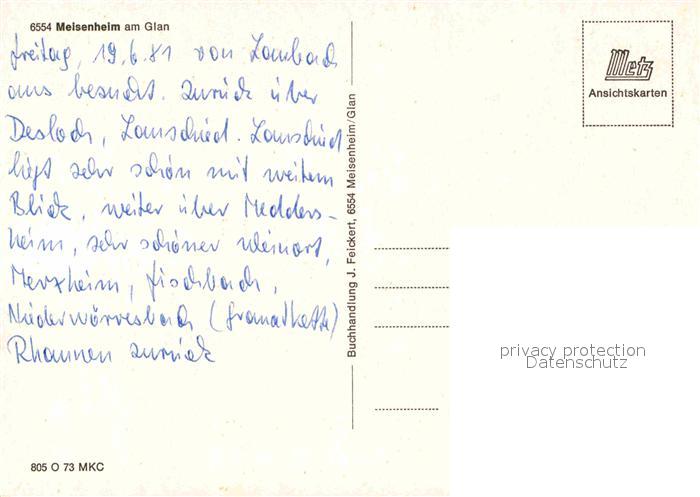 6554 Meisenheim am Glan
Freitag, 19.6.81 von Lambach
aus besucht. Zurück über
Desloch, Lauschied. Lauschied
liegt sehr schön mit weitem
Blick, weiter über Medders-
heim, sehr schöner Weinort,
Merxheim, Fischbach,
Niederwörresbach (Granatkette)
Rhaunen zurück
805 O 73 MKC
Buchhandlung J. Feickert, 6554 Meisenheim/Glan
Metz
Ansichtskarten
privacy protection
Datenschutz